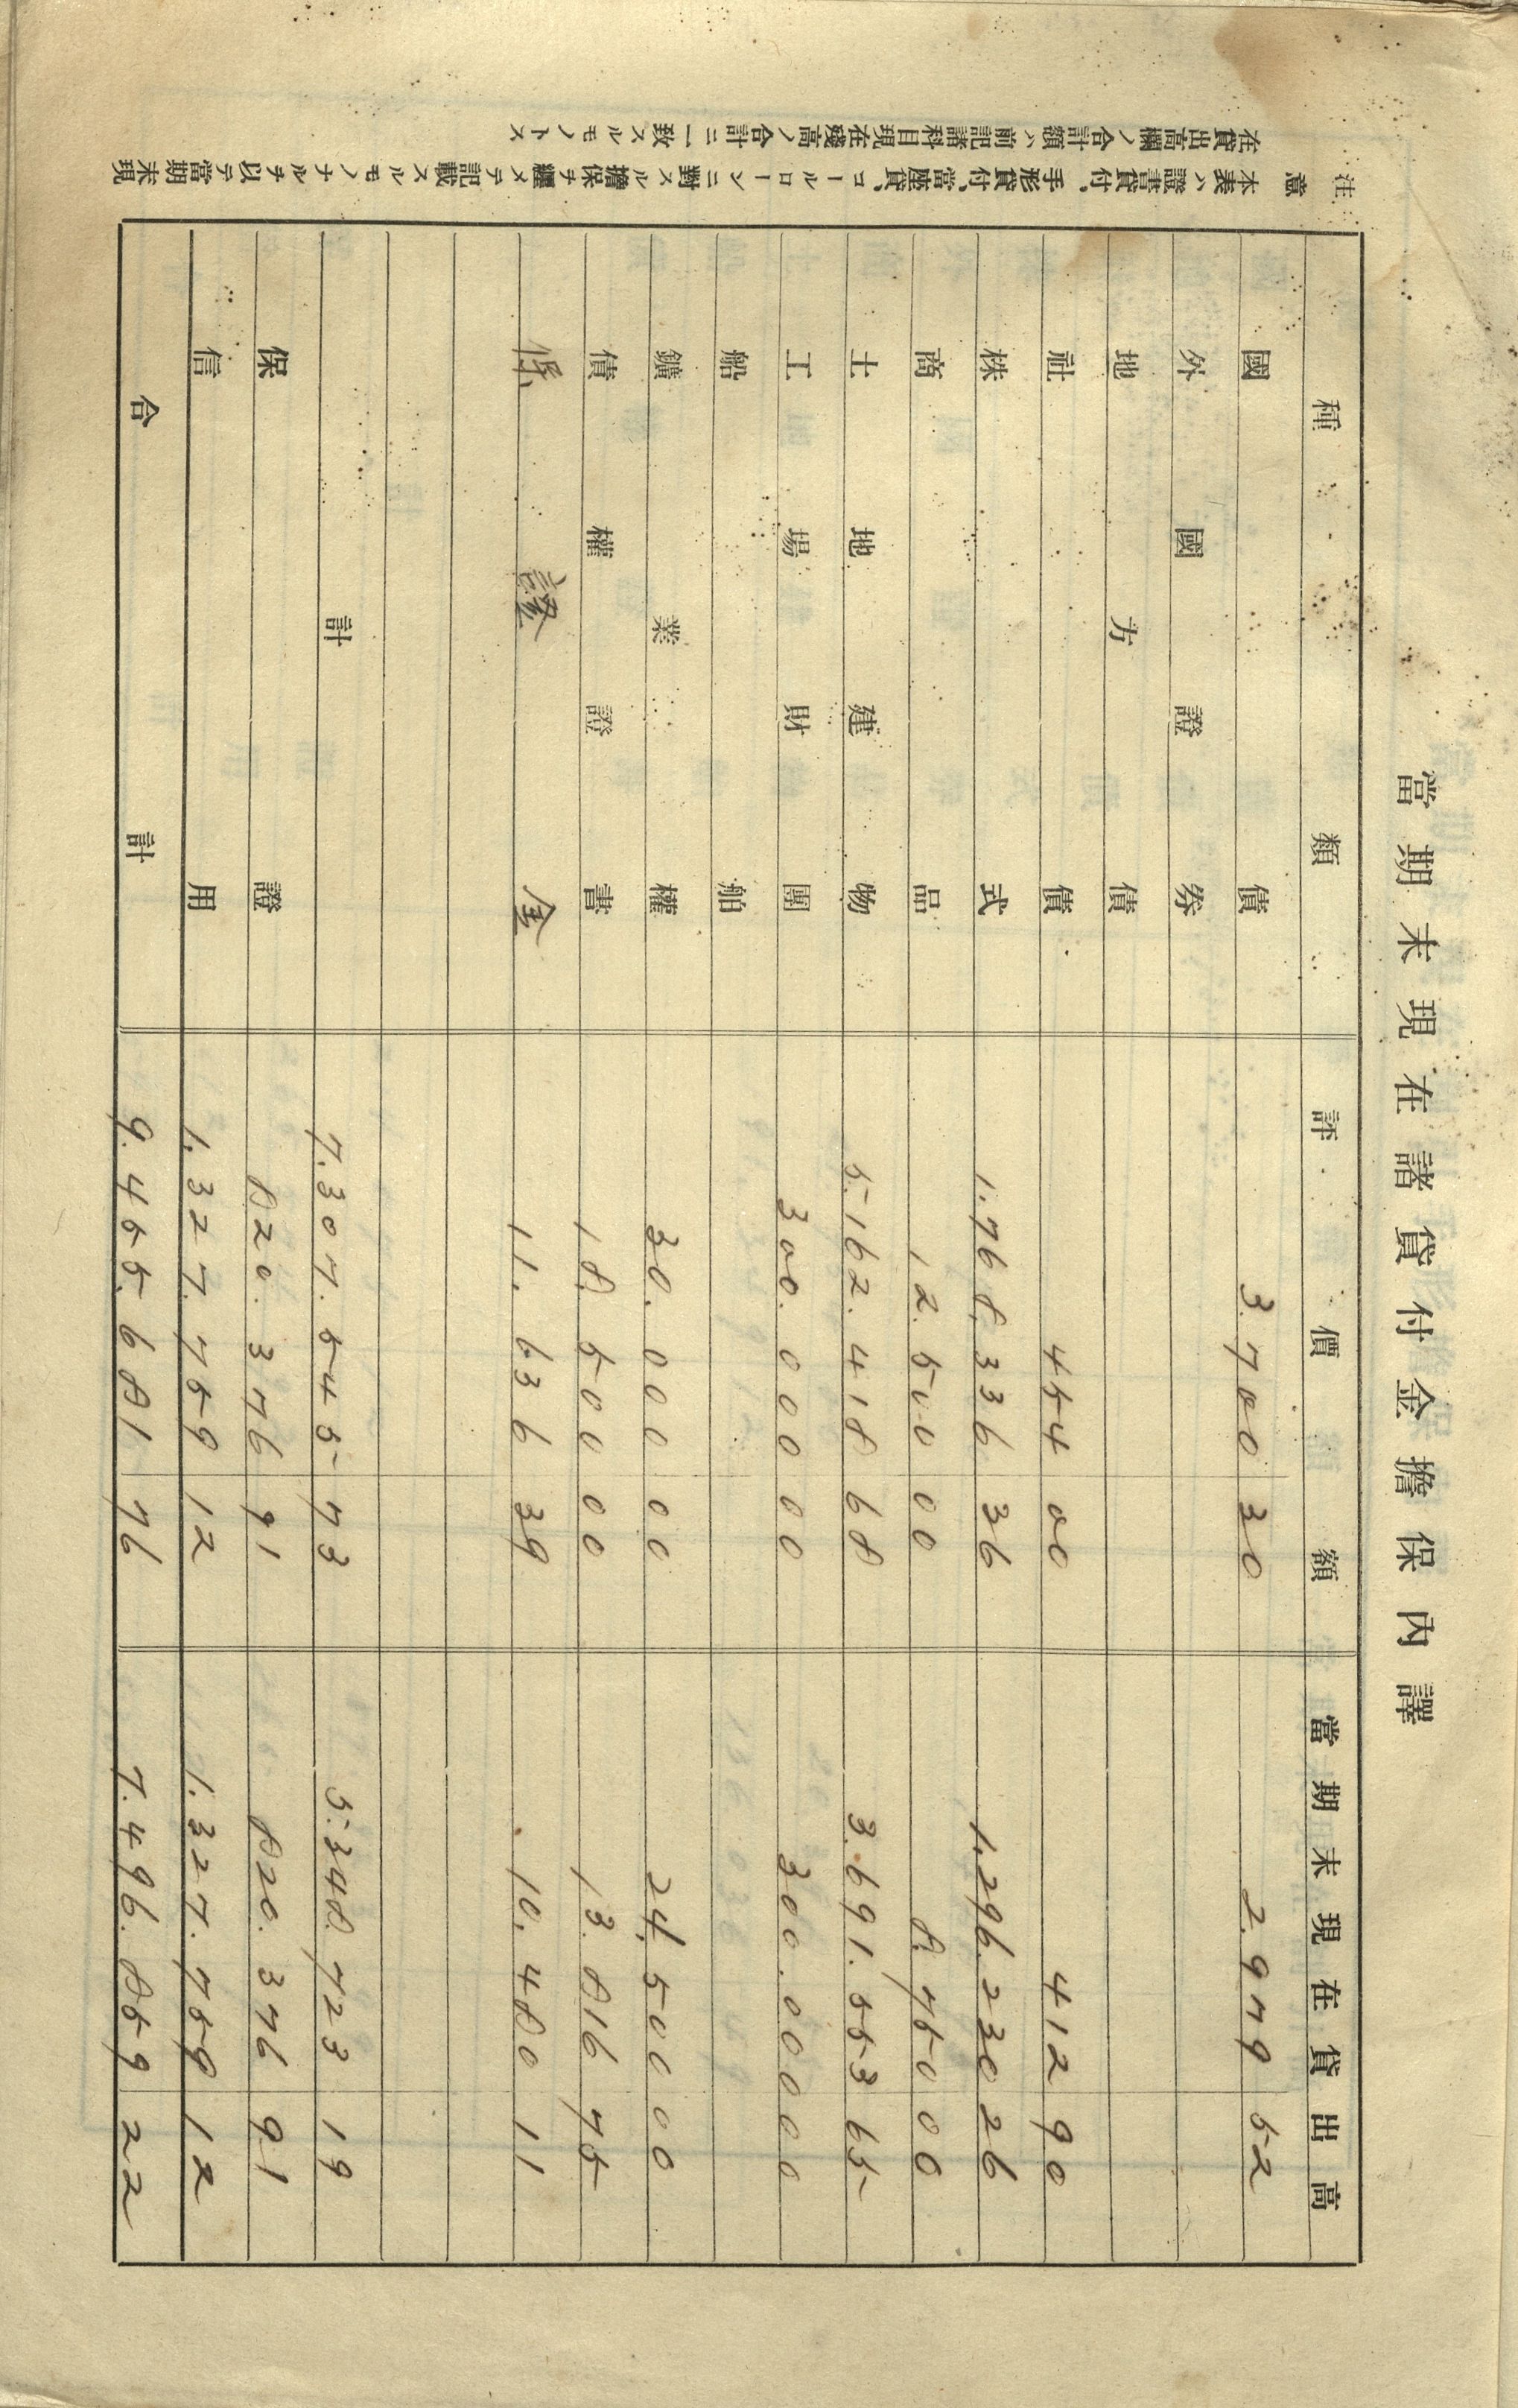 當期末現在諸貸付金擔保內譯
種類 評價額 當期末現在貸出高
國債 3.700 30 2.979 52
外國證券
地方債
社債 454 00 412 90
株式 1.768.336 36 1.296.230 26
商品 12.500 00 8.750 00
土地建物 5.162.418 68 3.691.553 65
工場財團 300.000 00 300.000 00
船舶
鑛業權 30.000 00 24.500 00
債權證書 18.500 00 13.816 75
保證金 11.636 39 10.480 11
計 7.307.545 73 5.348.723 19
保證 820.376 91 820.376 91
信用 1.327.759 12 1.327.759 12
合計 9.455.681 76 7.496.859 22
注意 本表ハ證書貸付、手形貸付、當座貸、コールローンニ對スル擔保ヲ纒メテ記載スルモノナルヲ以テ當期末現
在貸出高欄ノ合計額ハ前記諸科目現在殘高ノ合計ニ一致スルモノトス